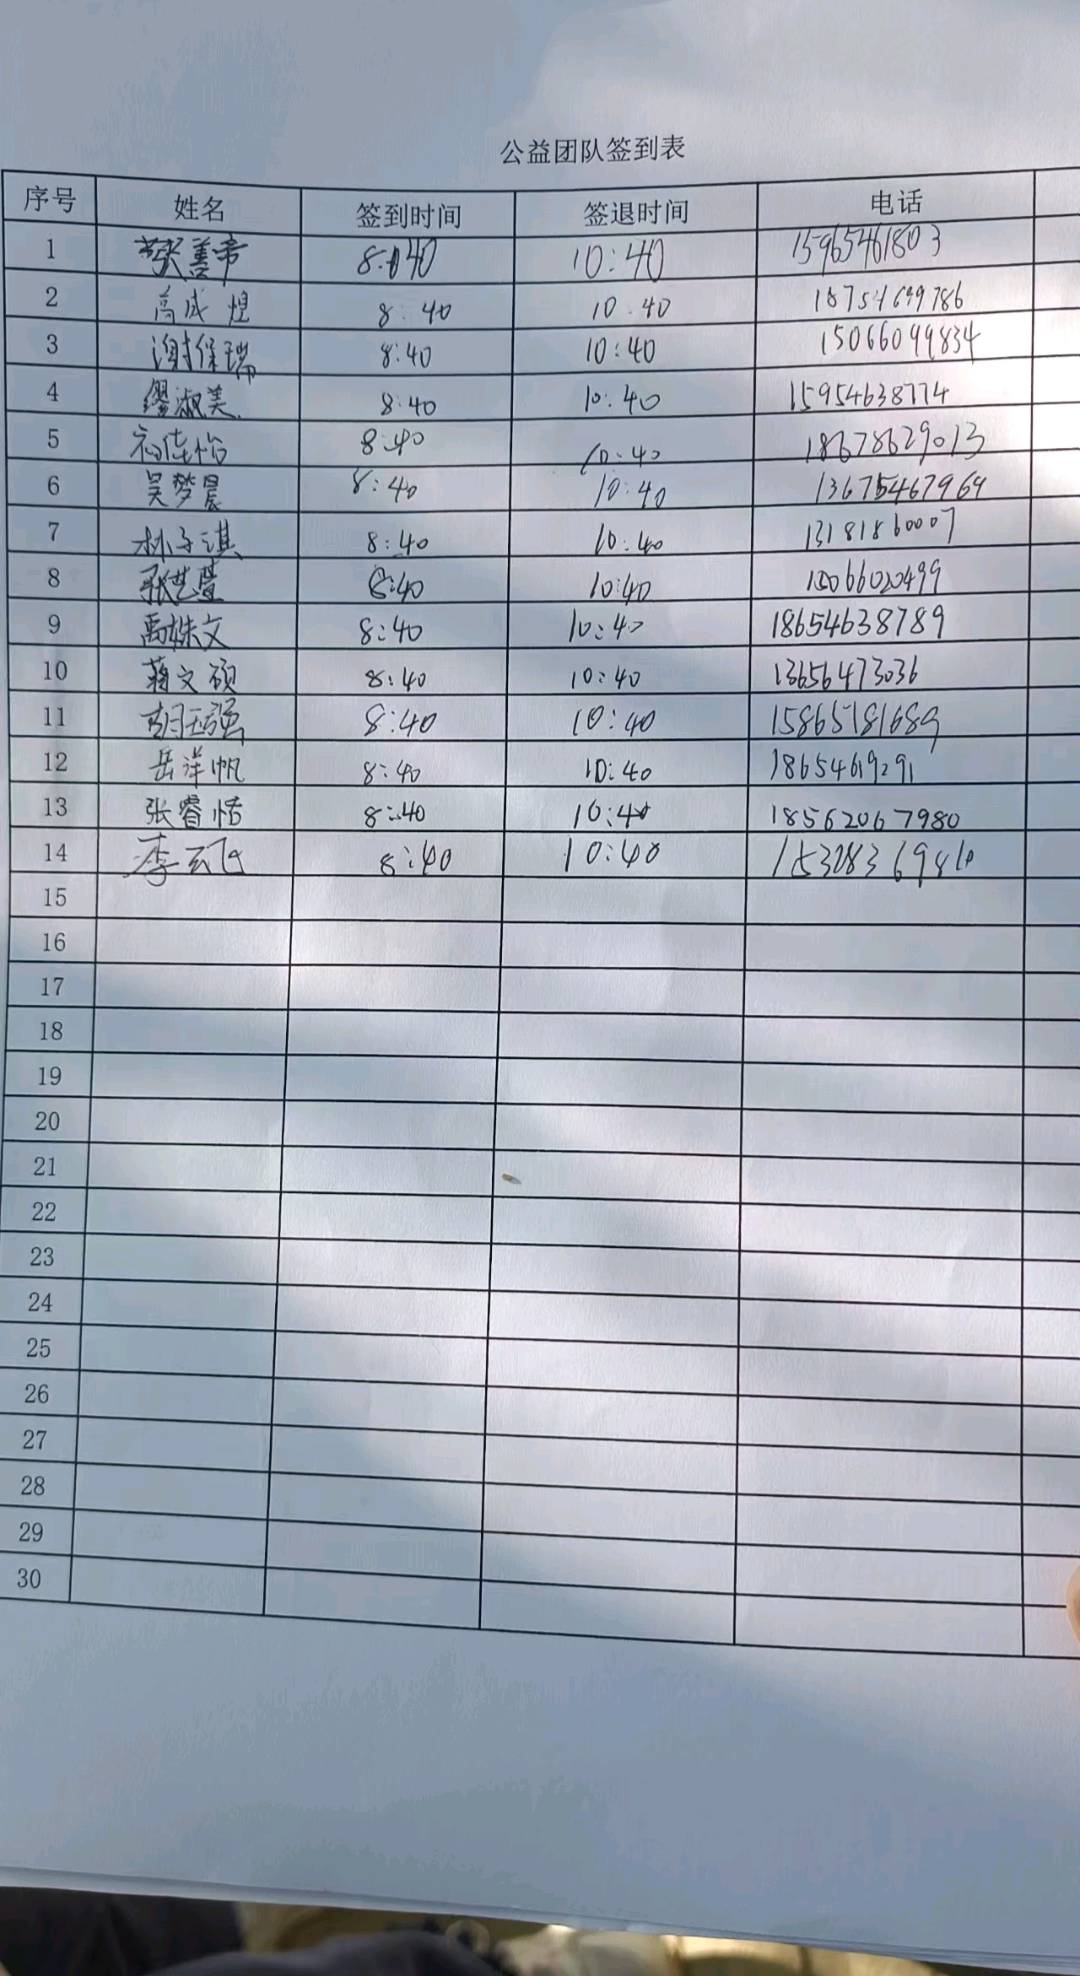 公益团队签到表
序号 姓名 签到时间 签退时间 电话
1 樊善帝 8:40 10:40 15965461803
2 高成煜 8:40 10:40 18754699786
3 谢保瑞 8:40 10:40 15066099834
4 缪淑美 8:40 10:40 15954638774
5 佳怡 8:40 10:40 18678629013
6 吴梦晨 8:40 10:40 13675467969
7 林子淇 8:40 10:40 13181860007
8 张艺萱 8:40 10:40 15066020499
9 高姝文 8:40 10:40 18654638789
10 蒋文硕 8:40 10:40 13656473036
11 胡玉强 8:40 10:40 15865781689
12 岳洋帆 8:40 10:40 18654619291
13 张睿恬 8:40 10:40 18562067980
14 李云飞 8:40 10:40
15
16
17
18
19
20
21
22
23
24
25
26
27
28
29
30